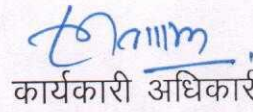 कार्यकारी अधिकारी